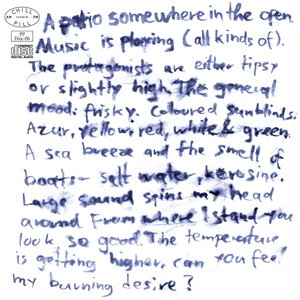 CHILL
PILL
PP
Disc-06
DIGITAL AUDIO
A patio somewhere in the open.
Music is playing (all kinds of)
The protagonists are either tipsy
or slightly high. The general
mood: frisky. Coloured sunblinds:
Azur, yellow, red, white & green.
A sea breeze and the smell of
boats - salt water, kerosine.
Large sound spins my head
around From where I stand you
look so good. The temperature
is getting higher, can you feel
my burning desire?